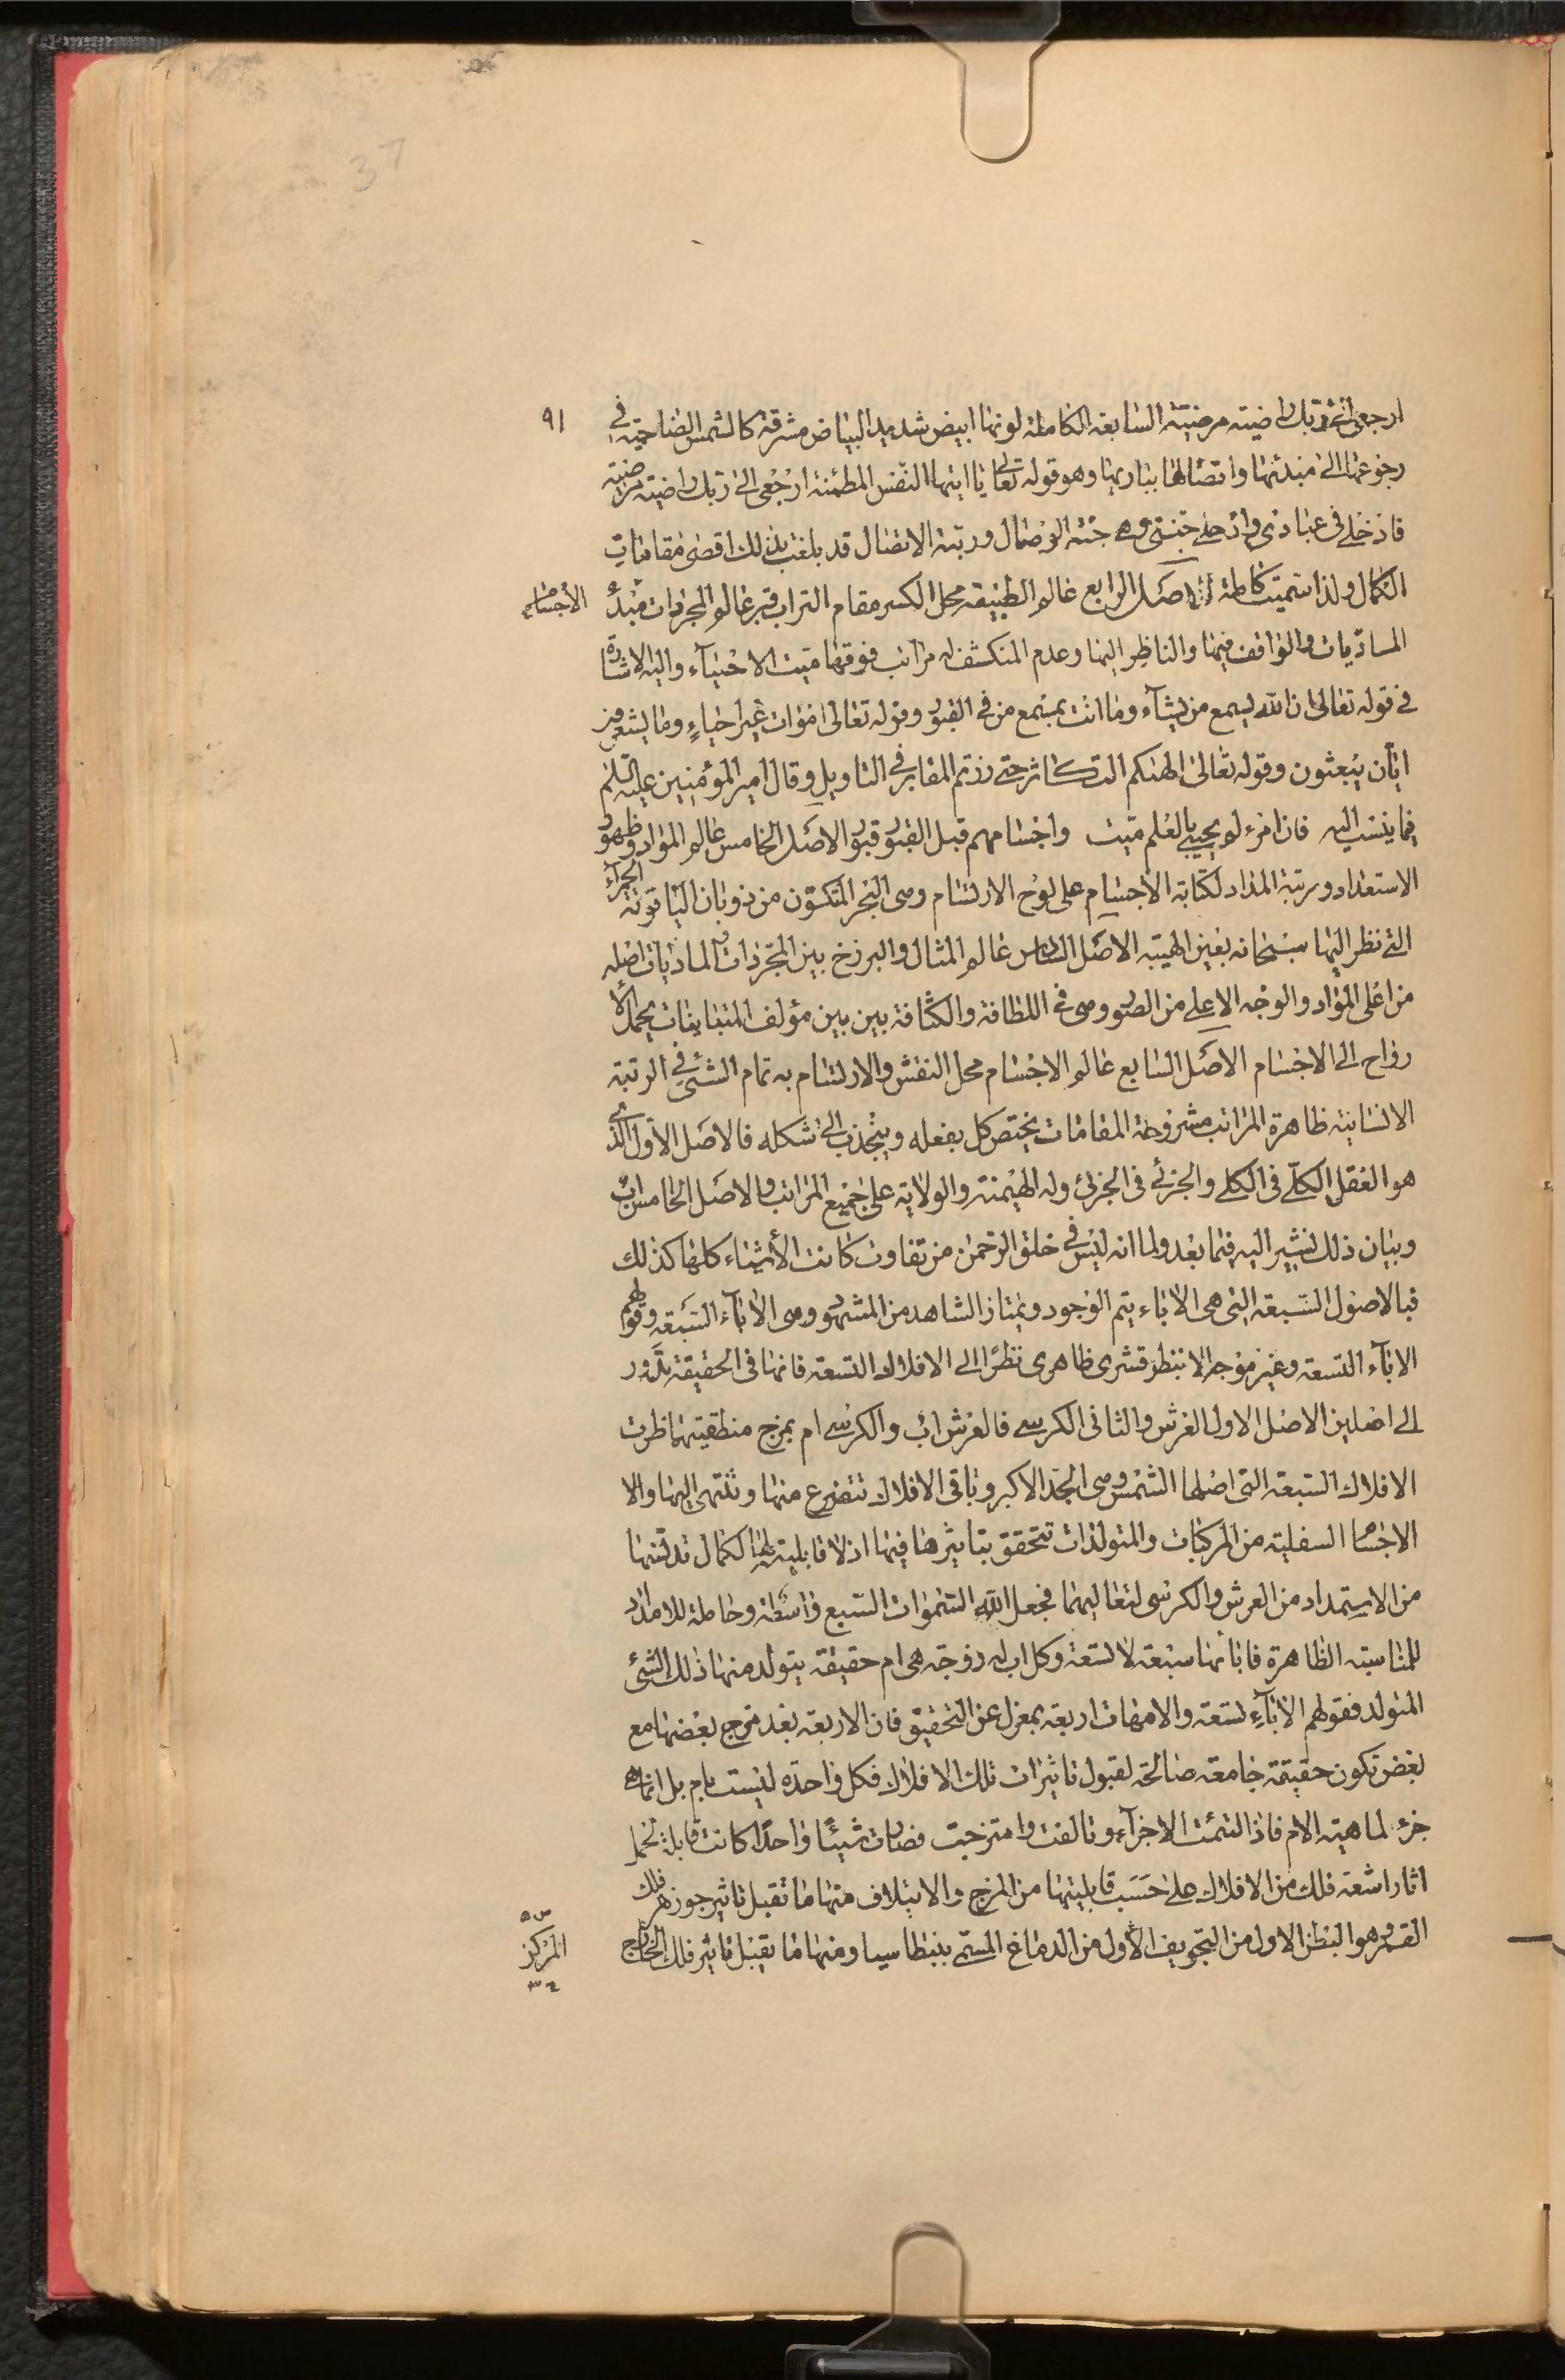 ٩١
37
ارجعي الى ربك راضية مرضية السابعة الكاملة لونها ابيض شديد البياض مشرقة كالشمس الضاحية في
رجوعها الى مبدئها واتصالها بباريها وهو قوله تعالى يا ايتها النفس المطمئنة ارجعى الى ربك راضية مرضية
فادخلى فى عبادى وادخلى جنتى وهى جنة الوصال ورتبة الاتصال قد بلغت بذلك اقصى مقامات
الكمال ولذا سميت كاملة الاصل الرابع عالم الطبيعة محل الكسر مقام التراب قبر عالم المجردات مبدأ الاجسام
الماديات والواقف فيها والناظر اليها وعدم المنكشف له مراتب فوقها ميت الاحياء واليه الاشارة
فى قوله تعالى ان الله يسمع من يشآء وما انت بمسمع من فى القبور وقوله تعالى اموات غير احياءٍ وما يشعرون
ايان يبعثون وقوله تعالى الهيكم التكاثر حتى زرتم المقابر فى التاويل وقال امير المؤمنين عليه السلم
فيما ينسب اليه فان امرء لم يحيى بالعلم ميت واجسامهم قبل القبور قبور الاصل الخامس عالم المواد وظهور
الاستعداد ورتبة المداد لكتابة الاجسام على لوح الارتسام وهى البحر المتكون من ذوبان الياقوتة الحمرآء
التى نظر اليها سبحانه بعين الهيبة الاصل السادس عالم المثال والبرزخ بين المجردات والماديات اصله
من اعلى المواد والوجه الاعلى من الصور وهى فى اللطافة والكثافة بين بين مؤلف المتباينات يحمل الا
رواح الى الاجسام الاصل السابع عالم الاجسام محل النقش والارتسام به تمام الشئ فى الرتبة
الانسانية ظاهرة المراتب مشروحة المقامات يختص كل بفعله وينجذب الى شكله فالاصل الاول الذى
هو العقل الكلّى فى الكلى والجزئى فى الجزئى وله الهيمنة والولاية على جميع المراتب والاصل الخامس اب
وبيان ذلك نشير اليه فيما بعد ولما انه ليس فى خلق الرحمن من تفاوت كانت الأشياء كلها كذلك
فبالاصول السبعة التى هى الاباء يتم الوجود ويمتاز الشاهد من المشهود وهى الاباء السبعة وقولهم
الاباء التسعة وغير موجه الا بنظر قشرى ظاهرى نظرًا الى الافلاك التسعة فانها فى الحقيقة تدور
الى اصلين الاصل الاول العرش والثانى الكرسى فالعرش اب والكرسى ام بمزج منطقتيهما ظهرت
الافلاك السبعة التى اصلها الشمس وهى الجد الاكبر وباقى الافلاك تتفرع منها وتنتهى اليها والا
الاجسا السفلية من المركبات والمتولدات تتحقق بتاثيرها فيها اذ لا قابلية لها لكمال تدنسها
من الاستمداد من العرش والكرسى لتعاليهما فجعل الله السموات السبع واسطة وحاملة للامداد
للمناسبة الظاهرة فاباؤنا سبعة لا تسعة وكل اب له زوجة هى ام حقيقة يتولد منها ذلك الشئ
المتولد فقولهم الاباء تسعة والامهات اربعة بمعزل عن التحقيق فان الاربعة بعد مزج بعضها مع
بعض تكون حقيقة جامعة صالحة لقبول تاثيرات تلك الافلاك فكل واحدة ليست بام بل انما هى
جزء لماهية الام فاذا التئمت الاجزآء وتالفت وامتزجت فصارت شيئًا واحدًا كانت قابلة تحمل
اثار اشعة فلك من الافلاك على حسب قابليتها من المزج والايتلاف منها ما تقبل تاثير جوزهر فلك
القمر وهو البطن الاول من التجويف الأول من الدماغ المسمى ببنطاسيا ومنها ما تقبل تاثير فلك الخارج
المركز